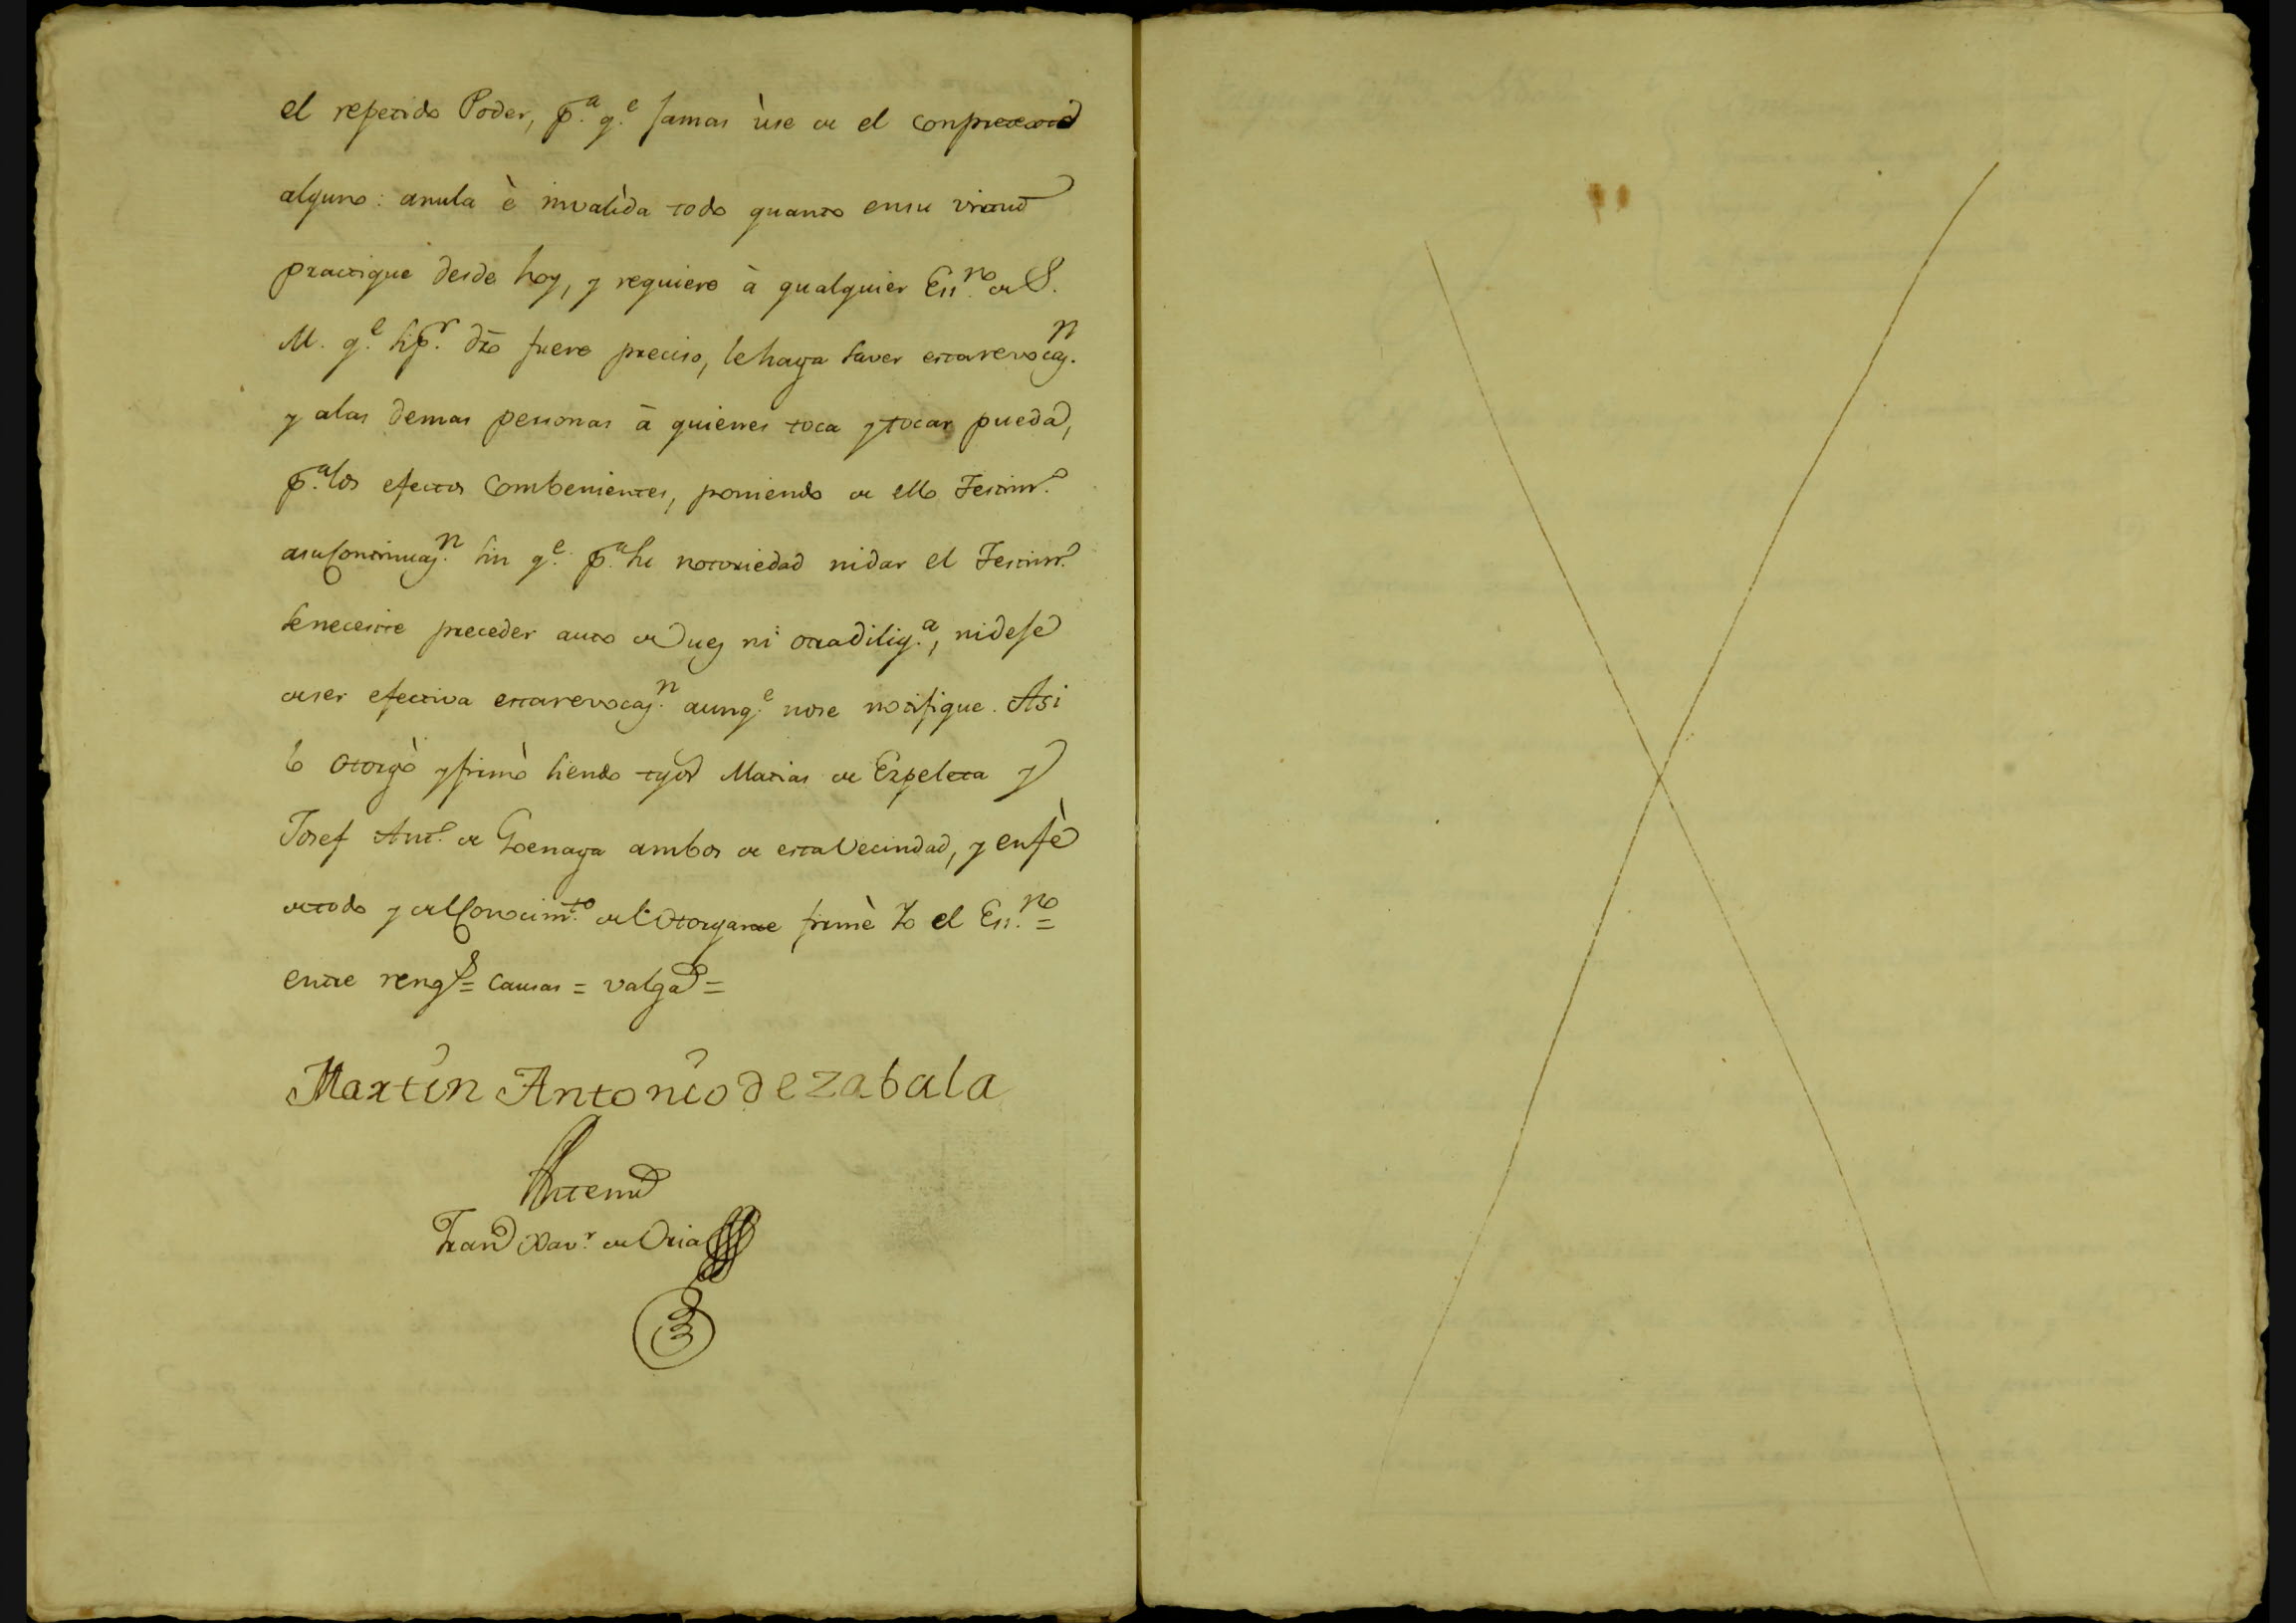 el repetido Poder, p.ª q.e jamas ùse de el conpretexto
alguno: anula è invalìda todo quanto ensu virtud
practique desde hoy, y requiere à qualquier Ess.no de S.
M. q.e si p.r dro fuere preciso, lehaga saver estarevocaz.n
y alas demas personas à quienes toca ytocar pueda,
p.ª los efectos combenientes, poniendo de ello Testim.o
asuContinuaz.n sin q.e p.ª su notoriedad nidar el Testim.o
senecesite preceder auto de Juez ni otradilig.ª, nidese
deser efectiva estarevocaz.n aunq.e nose notifique. Asi
lo otorgò yfirmò siendo tgos Matias de Ezpeleta y
Josef Ant.o de Goenaga ambos de estaVecindad, y enfè
detodo y delConocim.to del Otorgante firmè Yo el Ess.no =
entre rengs = causas = valga =
Martin Antonio de zabala
Antemi
Fran.co Xav.r de Oria